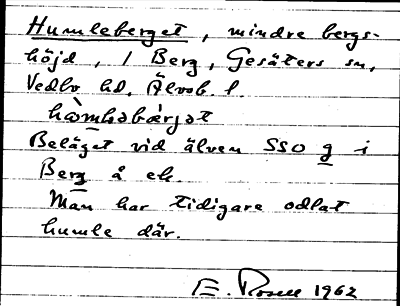 Humleberget, mindre bergs-
höjd, / Berg, Gesäters sn,
Vedbo hd, Älvsb. l.
Beläget vid älven SSO g i
Berg å ek.
Man har tidigare odlat
humle där.
E. Rosell 1962